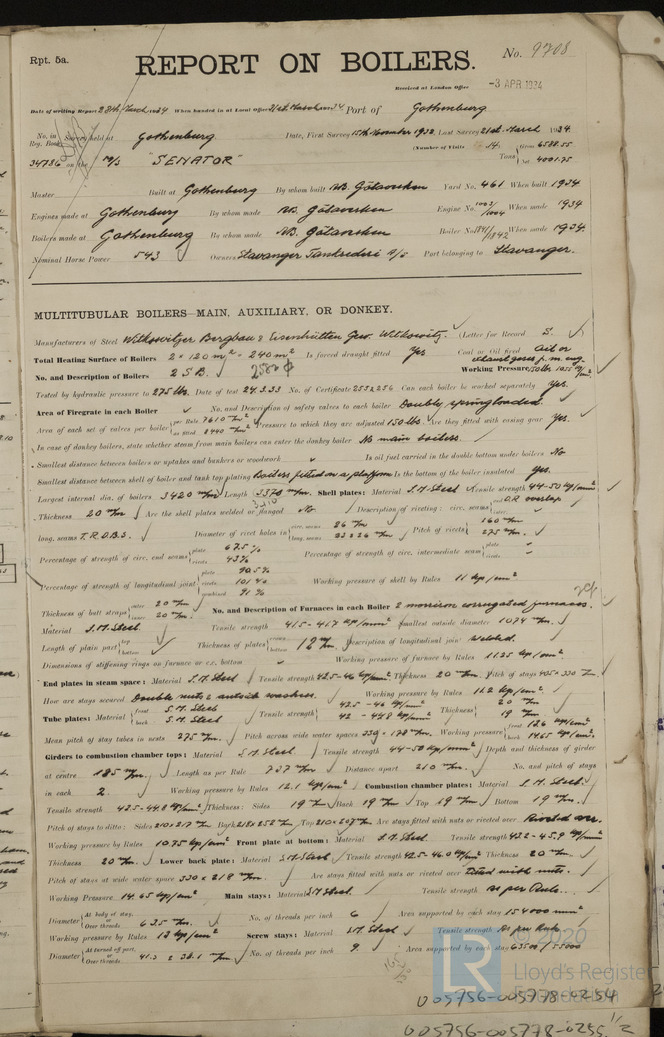 Rpt. 5a.
REPORT ON BOILERS.
No. 9708
Received at London Office
-3 APR 1934
Date of writing Report 28th March 1934 When handed in at Local Office 31st March 1934 Port of Gothenburg
No. in Reg. Book Survey held at Gothenburg Date, First Survey 15th November 1932 Last Survey 21st March 1934
(Number of Visits 14
34786 on the M/S "SENATOR" Tons Gross 6588.55 Net 4001.75
Master Built at Gothenburg By whom built A/B. Götaverken Yard No. 461 When built 1934
Engines made at Gothenburg By whom made A/B. Götaverken Engine No. 1003/1004 When made 1934
Boilers made at Gothenburg By whom made A/B. Götaverken Boiler No. 1841/1842 When made 1934
Nominal Horse Power 543 Owners Stavanger Tankrederi A/S Port belonging to Stavanger.
MULTITUBULAR BOILERS—MAIN, AUXILIARY, OR DONKEY.
Manufacturers of Steel Witkowitzer Bergbau & Eisenhütten Gew. Witkowitz. (Letter for Record S.)
Total Heating Surface of Boilers 2 × 120 m² = 240 m² Is forced draught fitted Yes Coal or Oil fired Oil or
No. and Description of Boilers 2 S.B. Working Pressure 150 lbs
Tested by hydraulic pressure to 275 lbs. Date of test 24.3.33 No. of Certificate 255 & 256 Can each boiler be worked separately Yes.
Area of Firegrate in each Boiler No. and Description of safety valves to each boiler Double, spring loaded.
Area of each set of valves per boiler per Rule 7610 mm² as fitted 8440 mm² Pressure to which they are adjusted 150 lbs. Are they fitted with easing gear Yes.
In case of donkey boilers, state whether steam from main boilers can enter the donkey boiler No main boilers.
Smallest distance between boilers or uptakes and bunkers or woodwork Is oil fuel carried in the double bottom under boilers No
Smallest distance between shell of boiler and tank top plating Boilers fitted on a platform Is the bottom of the boiler insulated Yes.
Largest internal dia. of boilers 3420 mm Length 3370 mm. Shell plates: Material S.M. Steel Tensile strength 44-50 kg/mm²
Thickness 20 mm Are the shell plates welded or flanged No Description of riveting: circ. seams end D.R. overlap
long. seams T.R.D.B.S. Diameter of rivet holes in circ. seams 26 mm long. seams Pitch of rivets 160 mm 275 mm.
Percentage of strength of circ. end seams plate 67.5% rivets 43% Percentage of strength of circ. intermediate seam plate rivets
Percentage of strength of longitudinal joint plate 90.5% rivets combined 91% Working pressure of shell by Rules 11 kg/cm²
Thickness of butt straps outer 20 mm inner 20 mm. No. and Description of Furnaces in each Boiler 2 morison corrugated furnaces.
Material S.M. Steel Tensile strength 41.5-41.7 kg/mm² Smallest outside diameter 1074 mm.
Length of plain part top bottom Thickness of plates crown bottom 12 mm. Description of longitudinal joint Welded.
Dimensions of stiffening rings on furnace or c.c. bottom Working pressure of furnace by Rules 11.25 kg/cm².
End plates in steam space: Material S.M. Steel Tensile strength 42.5-46 kg/mm² Thickness 20 mm. Pitch of stays 405 × 330 mm.
How are stays secured Double nuts & outside washers. Working pressure by Rules 11.2 kg/cm².
Tube plates: Material front S.M. Steel back S.M. Steel Tensile strength 42.5-46 kg/mm² 42-44.8 kg/mm² Thickness 20 mm 19 mm
Mean pitch of stay tubes in nests 275 mm. Pitch across wide water spaces 350-178 mm. Working pressure front 12.6 kg/cm² back 14.65 kg/cm².
Girders to combustion chamber tops: Material S.M. Steel Tensile strength 44-50 kg/mm² Depth and thickness of girder
at centre 185 mm. Length as per Rule 737 mm Distance apart 210 mm. No. and pitch of stays
in each 2. Working pressure by Rules 12.1 kg/cm² Combustion chamber plates: Material S.M. Steel.
Tensile strength 42.5-44.8 kg/mm² Thickness: Sides 19 mm Back 19 mm Top 19 mm Bottom 19 mm.
Pitch of stays to ditto: Sides 210×217 mm Back 218×252 mm Top 210×207 mm Are stays fitted with nuts or riveted over Riveted over.
Working pressure by Rules 10.75 kg/cm² Front plate at bottom: Material S.M. Steel Tensile strength 42.2-45.9 kg/mm²
Thickness 20 mm. Lower back plate: Material S.M. Steel Tensile strength 42.5-46.0 kg/mm² Thickness 20 mm.
Pitch of stays at wide water space 330 × 218 mm. Are stays fitted with nuts or riveted over Fitted with nuts.
Working Pressure 14.65 kg/cm² Main stays: Material S.M. Steel. Tensile strength As per Rule.
Diameter At body of stay, or Over threads 63.5 mm. No. of threads per inch 6 Area supported by each stay 154000 mm²
Working pressure by Rules 12 kg/cm² Screw stays: Material S.M. Steel Tensile strength As per Rule
Diameter At turned off part, or Over threads 41.3 & 38.1 mm No. of threads per inch 9. Area supported by each stay 63500/55000
© 2020
LR
Lloyd's Register
Foundation
005756-005778-0254
005756-005778-0255 1/2